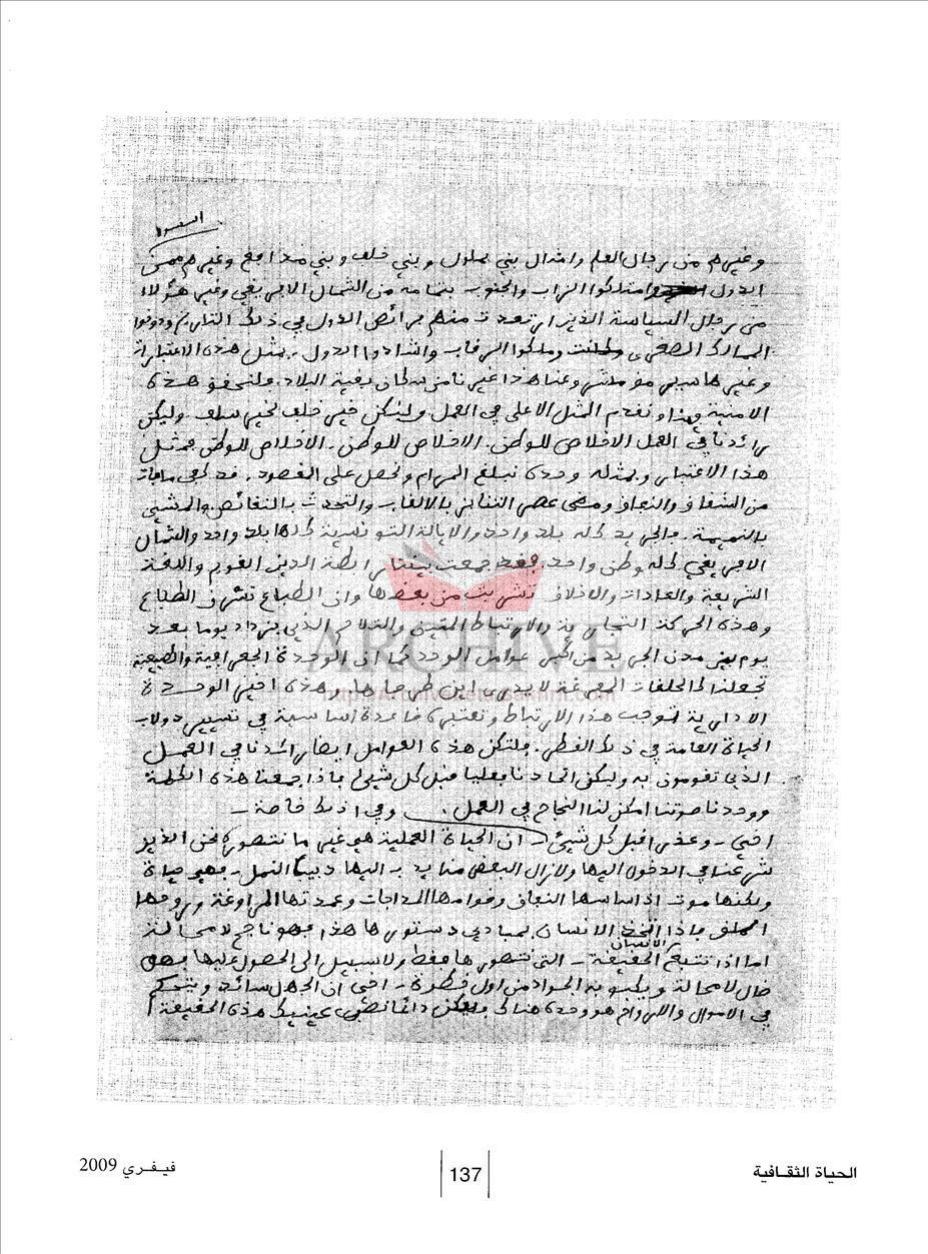 وغيرهم من رجال العلم وامثال بني جلول وبني خلف وبني وغيرهم ممن
الدول امتلكوا الزاب والجنوب بتمامه من الشمال الافريقي وغير هؤلاء
من رجال السياسة الذين ارتعدت منهم فرائص الدول في ذلك التاريخ ودوخوا
وملكوا الرقاب وشادوا الدول. بمثل هذه الاعتبارات
وغيرها سيبر وعنا هذا غير نامن سكان بقية البلاد. ولنحقق هذه
الامنية وهذا ونقدم المثل الاعلى في العمل ولنكن خير خلف لخير سلف. وليكن
رائدنا في العمل الاخلاص للوطن. الاخلاص للوطن. الاخلاص للوطن فبمثل
هذا الاعتبار وبمثله وحده نبلغ المرام ونحصل على المقصود. فقد كفى ما فات
من الشقاق والنفاق ومضى عصر التنابز بالالقاب والتحدث بالنقائص والمشي
بالنميمة. والجريد كله بلد واحد والايالة التونسية كلها بلد واحد والشمال
الافريقي كله وطن واحد. فقد جمعت بيننا رابطة الدين القويم واللغة
الشريفة والعادات والاخلاق تشربت من بعضها وان الطباع تسرق الطباع
وهذه الحركة التجارية والارتباط المتين والتلاحم الذي يزداد يوما بعد
يوم بين مدن الجريد من اكبر عوامل الوحدة كما ان الوحدة الجغرافية والطبيعية
تجعلنا كالحلقات المفرغة لا يدرى اين طرفاها. وهذه اخير الوحدة
الادارية توجب هذا الارتباط وتعتبره قاعدة اساسية في تسيير دولاب
الحياة العامة في ذلك القطر. ولتكن هذه العوامل ايضا رائدنا في العمل
الذي تقومون به وليكن اتحادنا فعليا قبل كل شيء فاذا جمعنا هذه الكلمة
ووحدنا صوتنا امكن لنا النجاح في العمل. وفي اذنك خاصة -
اخي - وعذرا قبل كل شيء - ان الحياة العملية هي غير ما نتصوره نحن الذين
شرعنا في الدخول اليها ولازال البعض منا يدب اليها دبيب النمل - فهي حياة
ولكنها موت اذ اساسها النفاق وقوامها المداجات وعمدتها المراوغة وروحها
الملق فاذا اتخذ الانسان بمبادئ دستورها هذا فهو ناجح لا محالة
اما اذا تتبع الانسان الحقيقة - التي نتصورها فقط ولا سبيل الى الحصول عليها فهو
خال لا محالة ويكبو به الجواد من اول خطوة - اخي ان الجهل سائد ويتحكم
في الاموال والارواح هو وحده هناك وليكن دائما نصب عينيك هذه الحقيقة
الحياة الثقافية
137
فيفري 2009
ARCHIVE